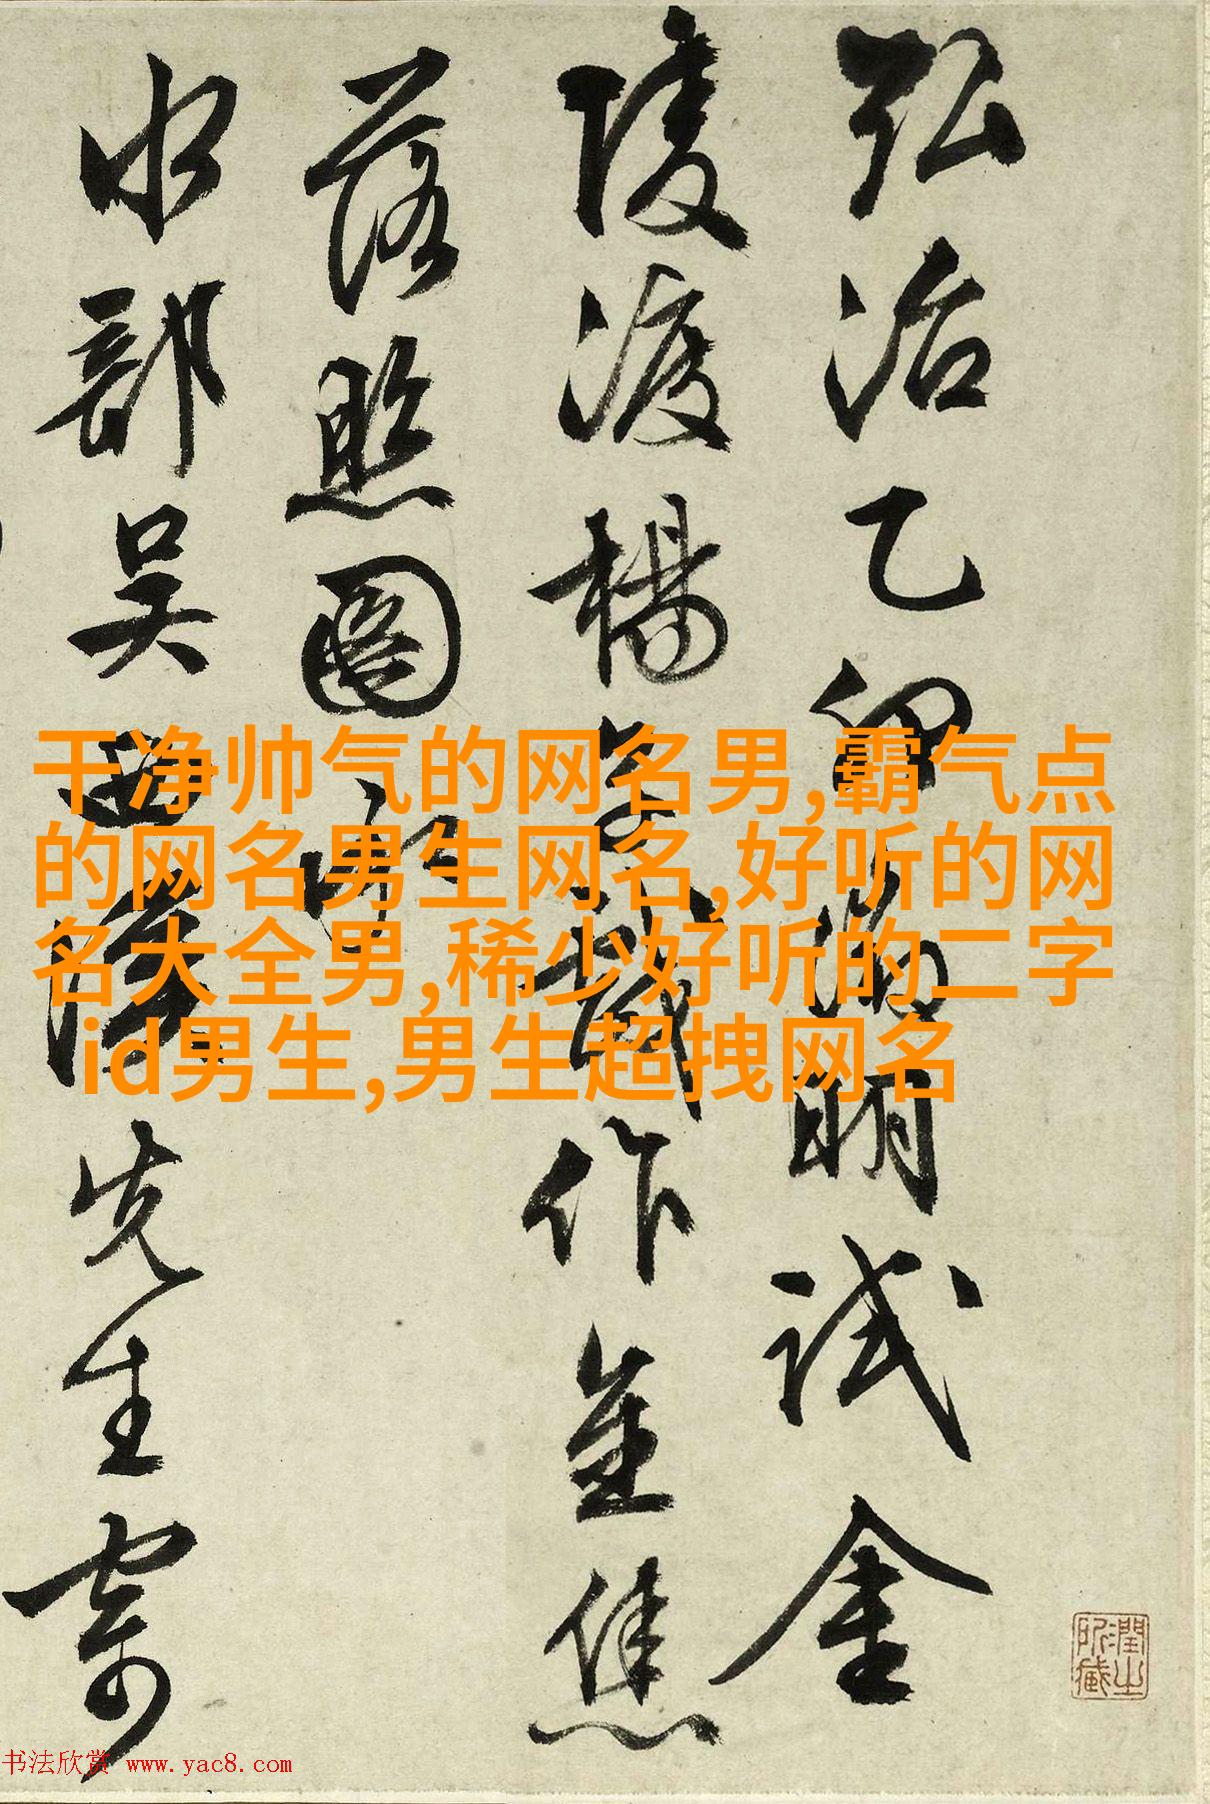 弘治乙卯明試金
陵渡楊子戲作金焦
落照圖
水部吴西先生寄
干净帅气的网名男,霸气点
的网名男生网名,好听的网
名大全男,稀少好听的二字
id男生,男生超拽网名
潤之所藏
书法欣赏 www.yac8.com